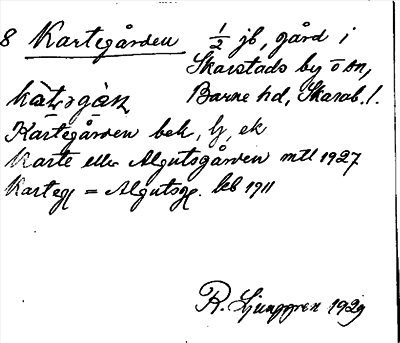 8 Kartegården 1/2 jb, gård i
Skarstads by o sn,
Barne hd, Skarab. l.
Kartegården bek, lj, ek
Karte eller Algutsgården mtl 1927
Karteg = Algutsg. leb 1911
R. Ljunggren 1929